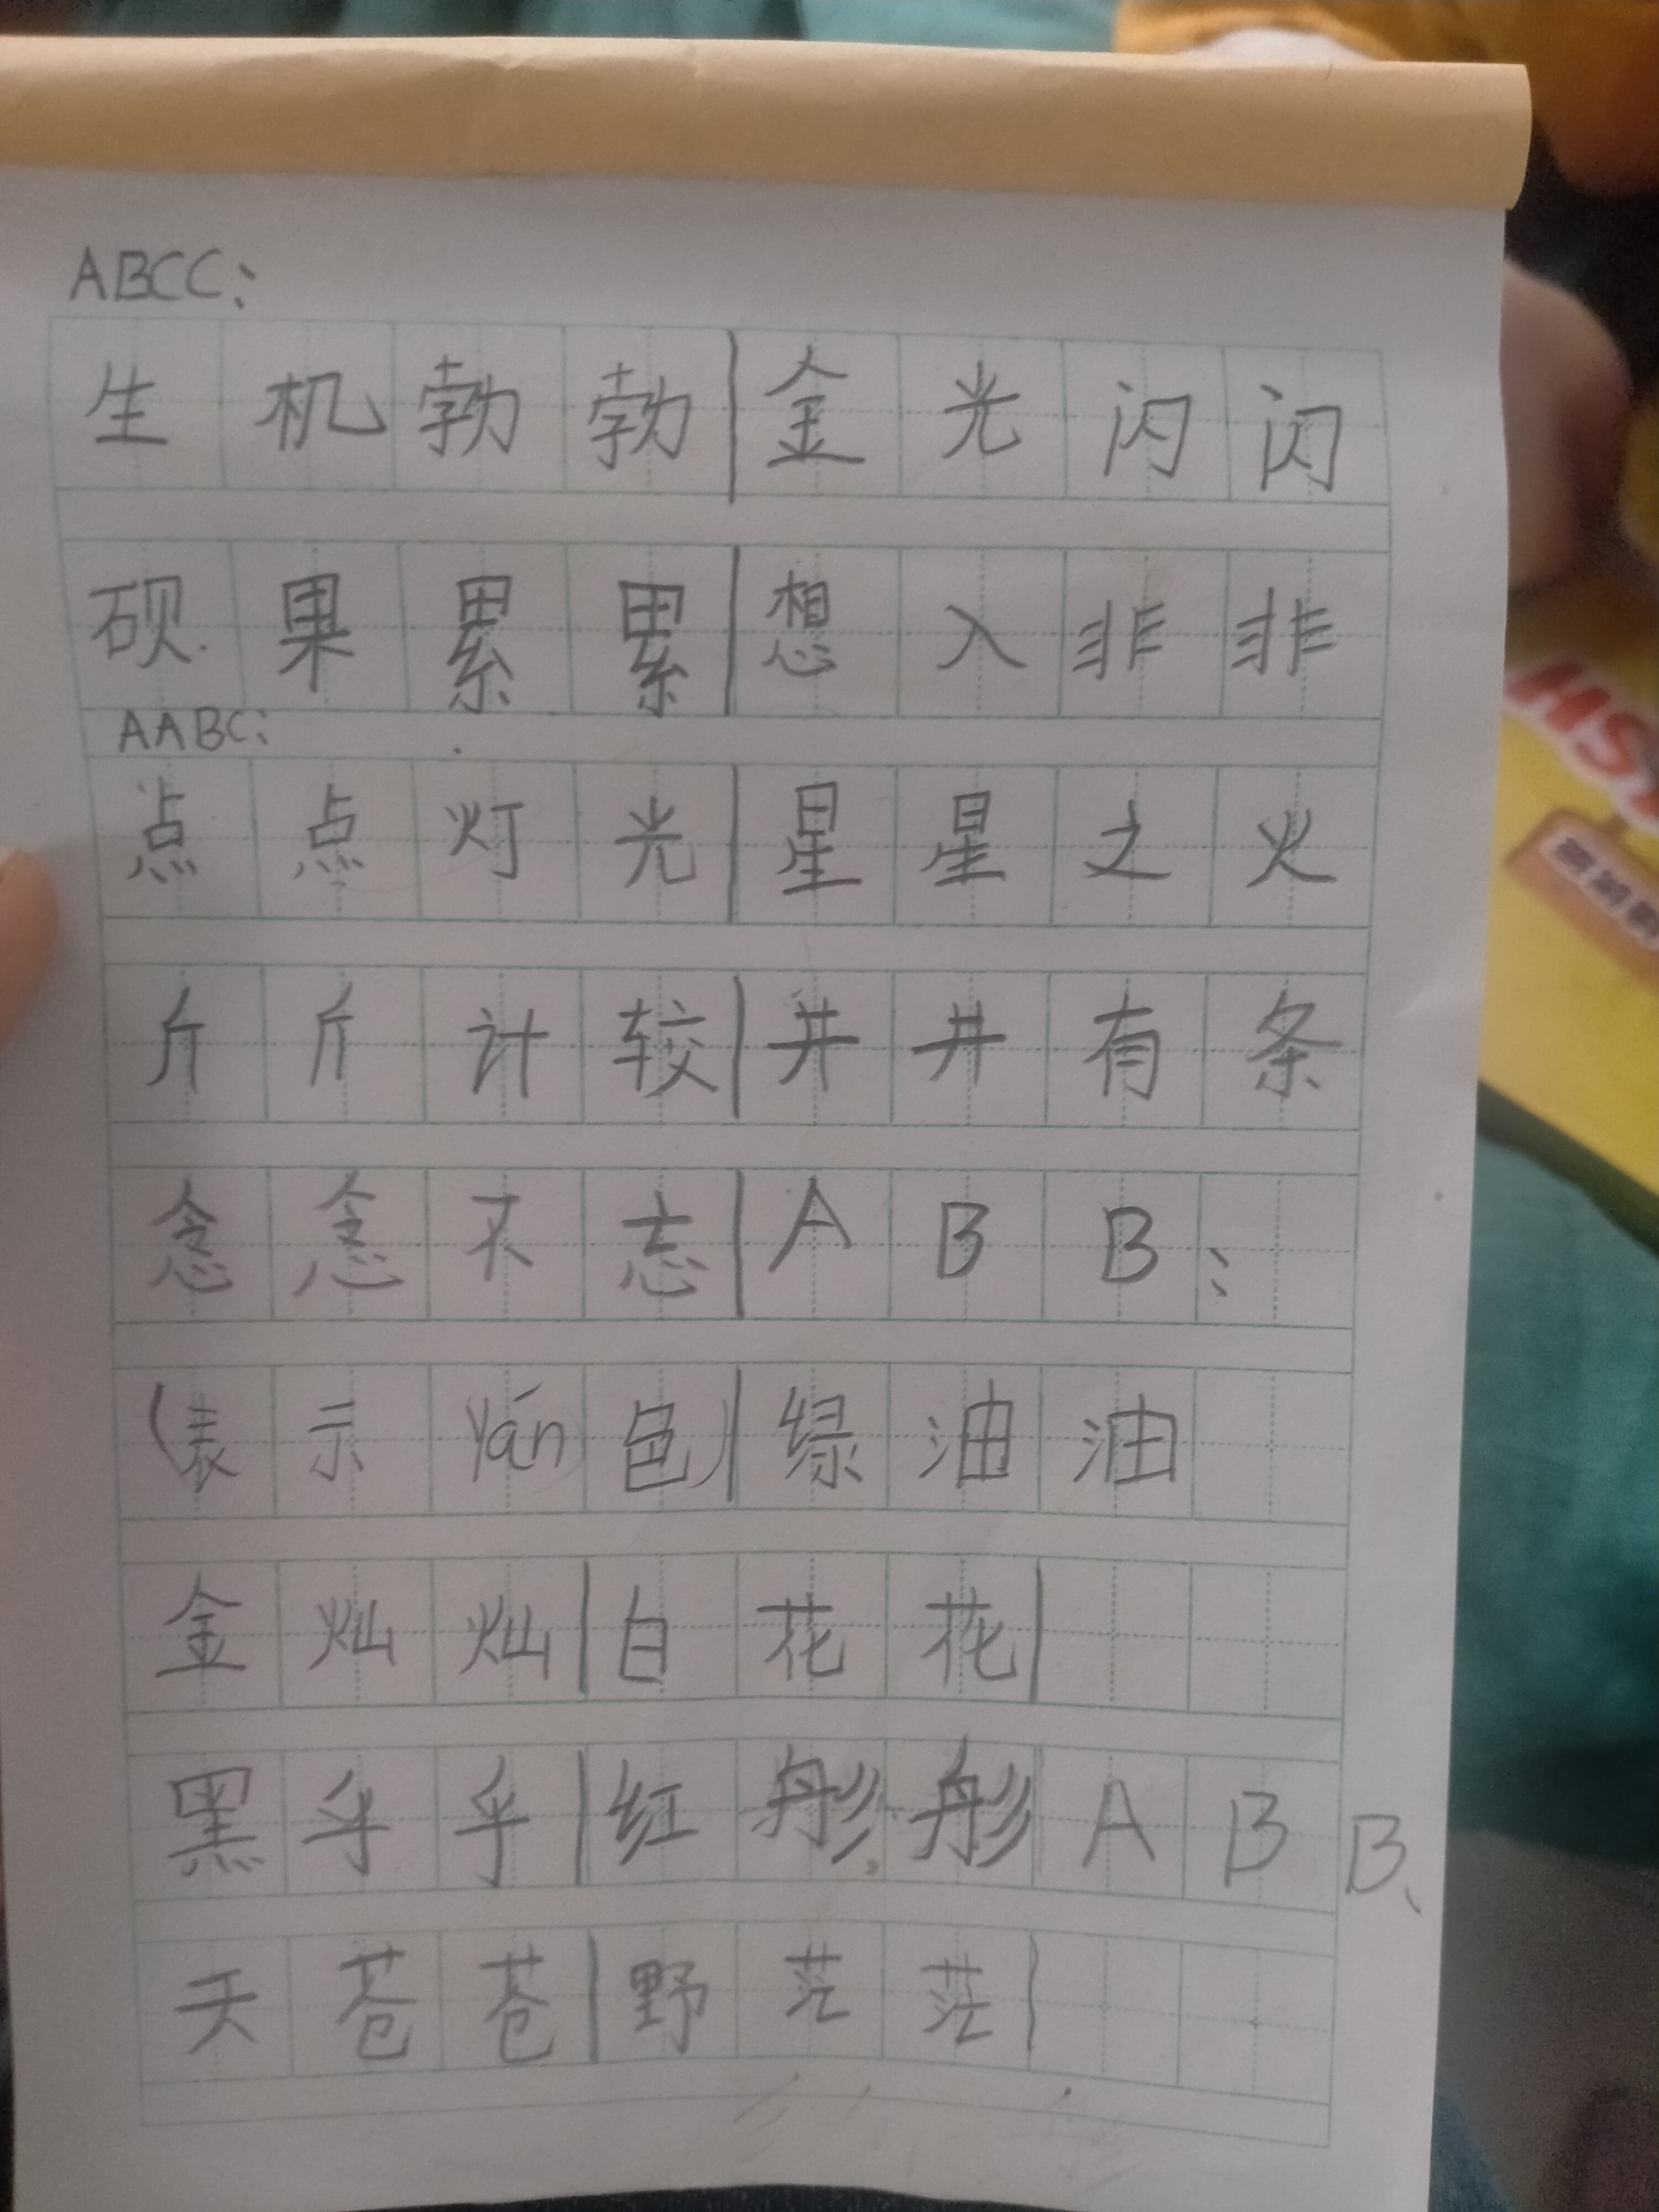 ABCC:
生机勃勃|金光闪闪
硕果累累|想入非非
AABC:
点点灯光|星星之火
斤斤计较|井井有条
念念不忘|ABB:
(表示yán色)|绿油油
金灿灿|白花花|
黑乎乎|红彤彤ABB、
天苍苍|野茫茫|
HS